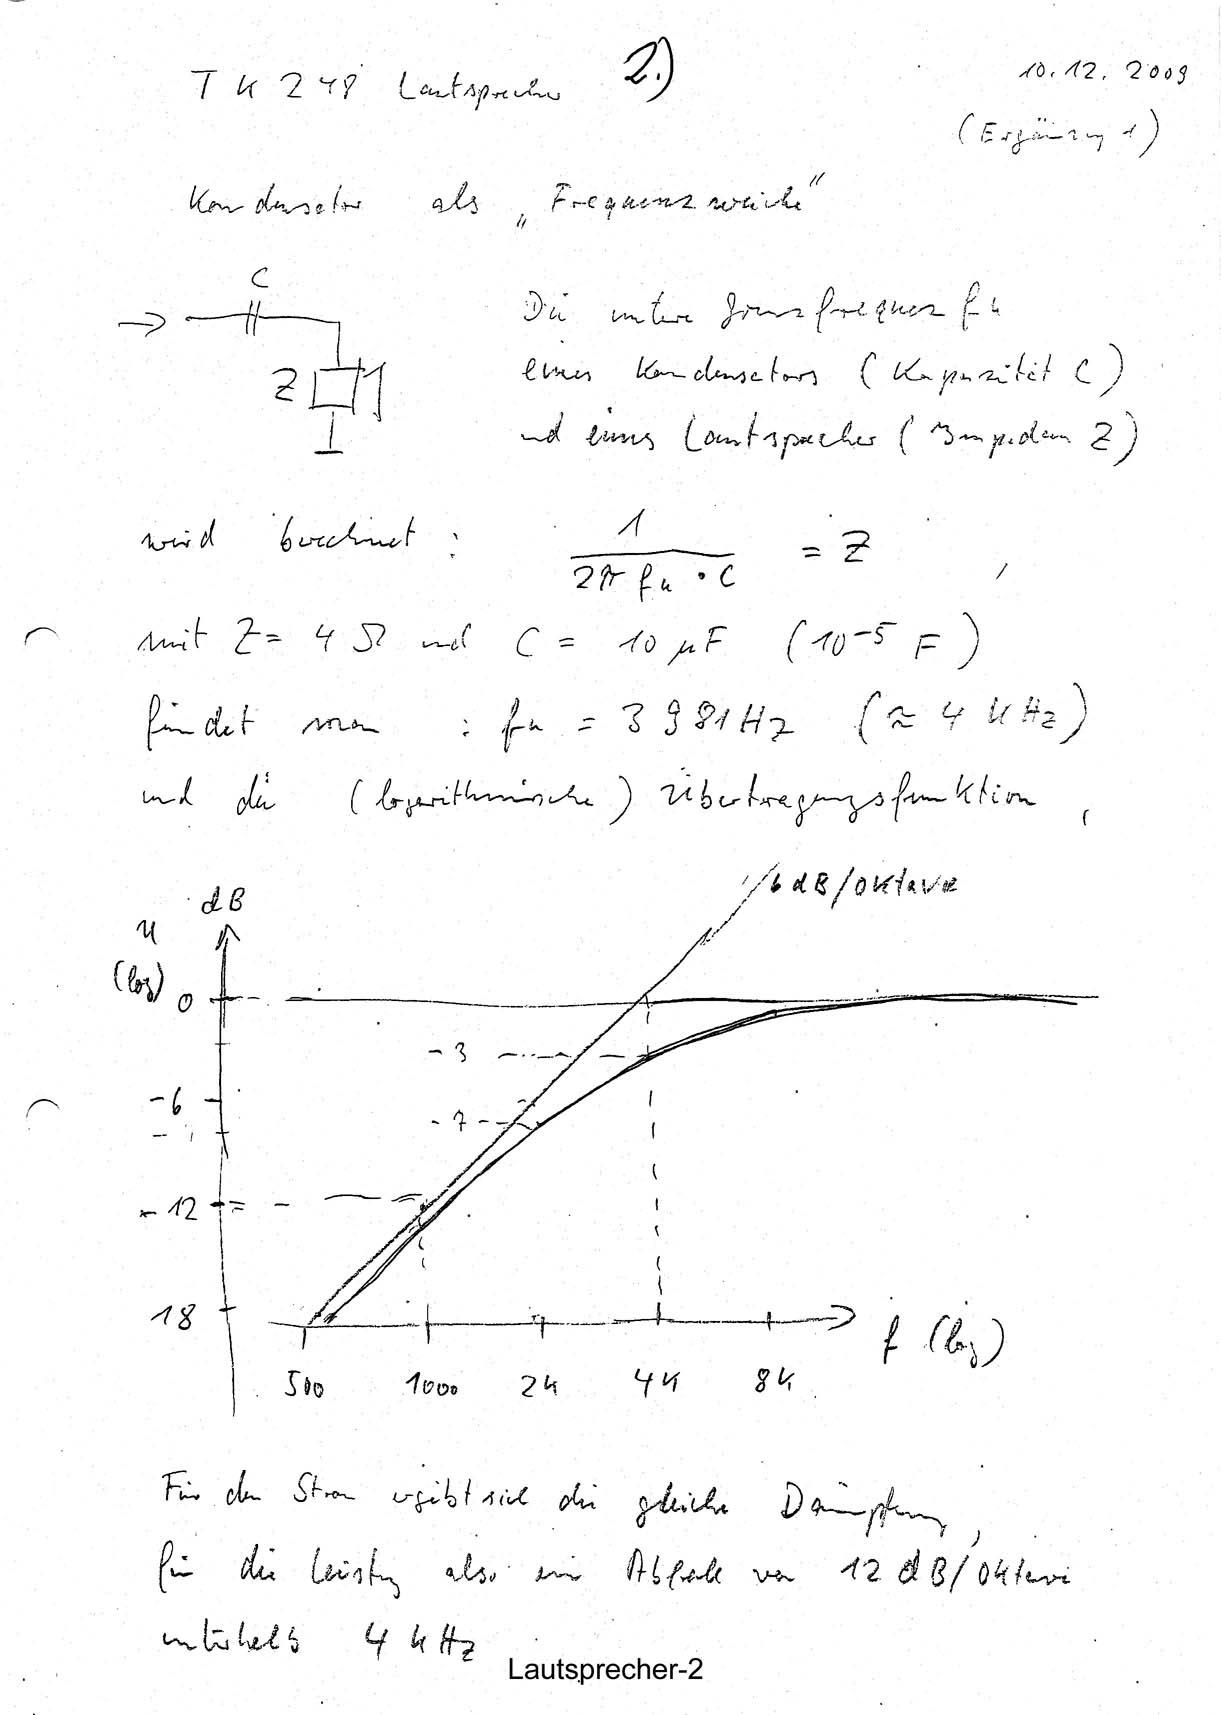 TK 248 Lautsprecher 2.) 10.12.2009
(Ergänzung 1)
Kondensator als „Frequenzweiche“
C
Z
Die untere Grenzfrequenz fu
eines Kondensators (Kapazität C)
und eines Lautsprecher (Impedanz Z)
wird berechnet : 1 / 2π fu · C = Z ,
mit Z = 4 Ω und C = 10 µF (10⁻⁵ F)
findet man : fu = 3981 Hz (≈ 4 KHz)
und die (logarithmische) Übertragungsfunktion ,
6 dB/Oktave
dB
u
(log)
0
-3
-6
-7
-12
18
500 1000 2K 4K 8K
f (log)
Für den Strom ergibt sich die gleiche Dämpfung,
für die Leistung also ein Abfall von 12 dB/Oktave
unterhalb 4 KHz
Lautsprecher-2